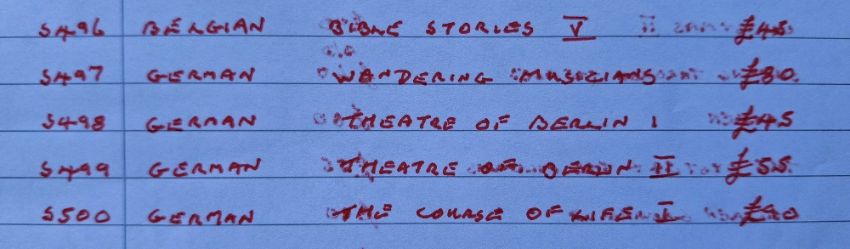 S496 BELGIAN BIBLE STORIES V £45
S497 GERMAN WANDERING MUSICIANS £80
S498 GERMAN THEATRE OF BERLIN I £45
S499 GERMAN THEATRE OF BERLIN II £55
S500 GERMAN THE COURSE OF LIFE I